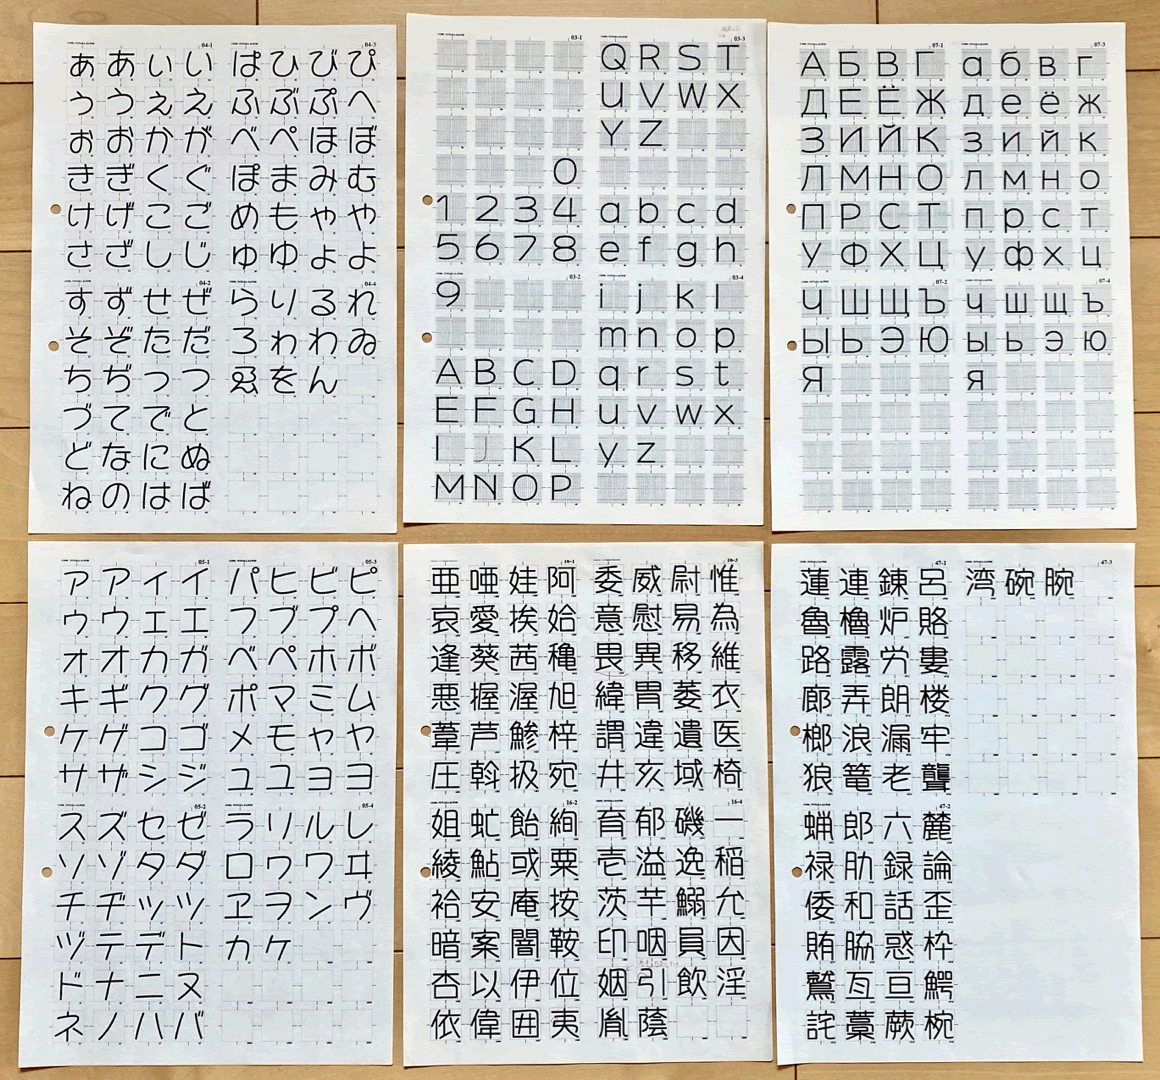 04-1
ぁあぃい
ぅうぇえ
ぉおかが
きぎくぐ
けげこご
さざしじ
04-2
すずせぜ
そぞただ
ちぢっつ
づてでと
どなにぬ
ねのはば
04-3
ぱひびぴ
ふぶぷへ
べぺほぼ
ぽまみむ
めもゃや
ゅゆょよ
04-4
らりるれ
ろゎわゐ
ゑをん
03-1
0
1234
5678
03-2
9
ABCD
EFGH
IJKL
MNOP
03-3
QRST
UVWX
YZ
abcd
efgh
03-4
ijkl
mnop
qrst
uvwx
yz
07-1
АБВГ
ДЕЁЖ
ЗИЙК
ЛМНО
ПРСТ
УФХЦ
07-2
ЧШЩЪ
ЫЬЭЮ
Я
07-3
абвг
деёж
зийк
лмно
прст
уфхц
07-4
чшщъ
ыьэю
я
05-1
ァアィイ
ゥウェエ
ォオカガ
キギクグ
ケゲコゴ
サザシジ
05-2
スズセゼ
ソゾタダ
チヂッツ
ヅテデト
ドナニヌ
ネノハバ
05-3
パヒビピ
フブプヘ
ベペホボ
ポマミム
メモャヤ
ュユョヨ
05-4
ラリルレ
ロヮワヰ
ヱヲンヴ
ヵヶ
16-1
亜唖娃阿
哀愛挨姶
逢葵茜穐
悪握渥旭
葦芦鯵梓
圧斡扱宛
16-2
姐虻飴絢
綾鮎或粟
袷安庵按
暗案闇鞍
杏以伊位
依偉囲夷
16-3
委威尉惟
意慰易為
畏異移維
緯胃萎衣
謂違遺医
井亥域椅
16-4
育郁磯一
壱溢逸稲
茨芋鰯允
印咽員因
姻引飲淫
胤蔭
47-1
蓮連錬呂
魯櫓炉賂
路露労婁
廊弄朗楼
榔浪漏牢
狼篭老聾
47-2
蝋郎六麓
禄肋録論
倭和話歪
賄脇惑枠
鷲亙亘鰐
詫藁蕨椀
47-3
湾碗腕